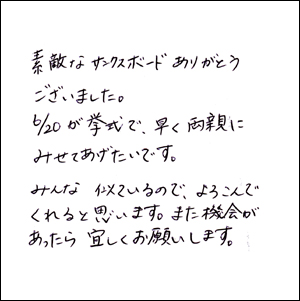 素敵なサンクスボードありがとう
ございました。
6/20が挙式で、早く両親に
みせてあげたいです。
みんな似ているので、よろこんで
くれると思います。また機会が
あったら宜しくお願いします。